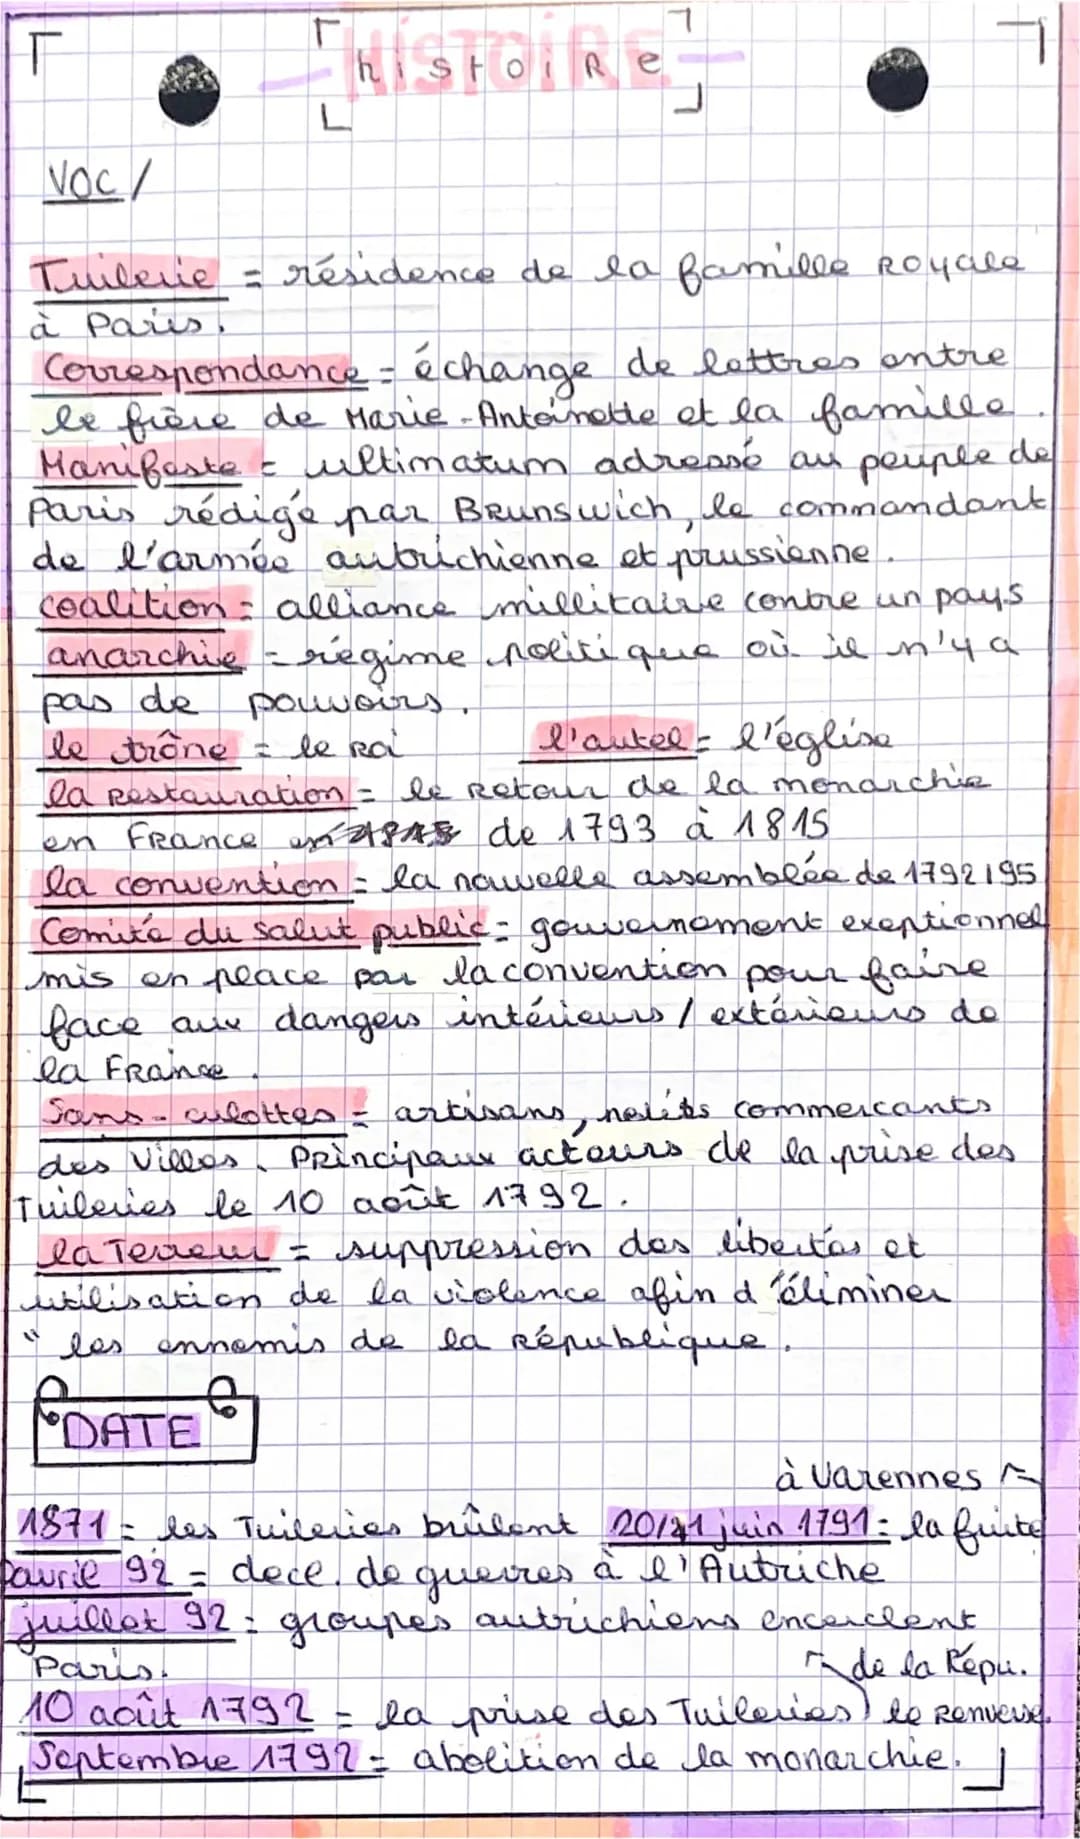 HISTOIRE
histoire
VOC /
Tuilerie = résidence de la famille Royale
à Paris.
Correspondance = échange de lettres entre
le frère de Marie-Antoinette et la famille.
Manifeste = ultimatum adressé au peuple de
Paris rédigé par Brunswich, le commandant
de l'armée autrichienne et prussienne.
coalition = alliance millitaire contre un pays
anarchie = régime politique où il n'y a
pas de pouvoirs.
le trône = le Roi l'autel = l'église
la restauration = le Retour de la monarchie
en France de 1793 à 1815
la convention = la nouvelle assemblée de 1792/95
Comité du salut public = gouvernement exeptionnel
mis en place par la convention pour faire
face aux dangers intérieurs / extérieurs de
la France.
Sans-culottes = artisans, petits commercants
des villes. Principaux acteurs de la prise des
Tuileries le 10 août 1792.
la Terreur = suppression des libertés et
utilisation de la violence afin d'éliminer
" les ennemis de la République.
DATE
à Varennes
1871 = les Tuileries brûlent 20/21 juin 1791 = la fuite
avril 92 = dece. de guerres à l'Autriche
juillet 92 = groupes autrichiens encerclent
Paris.
de la Répu.
10 août 1792 = la prise des Tuileries) le Renverse.
Septembre 1792 = abolition de la monarchie.